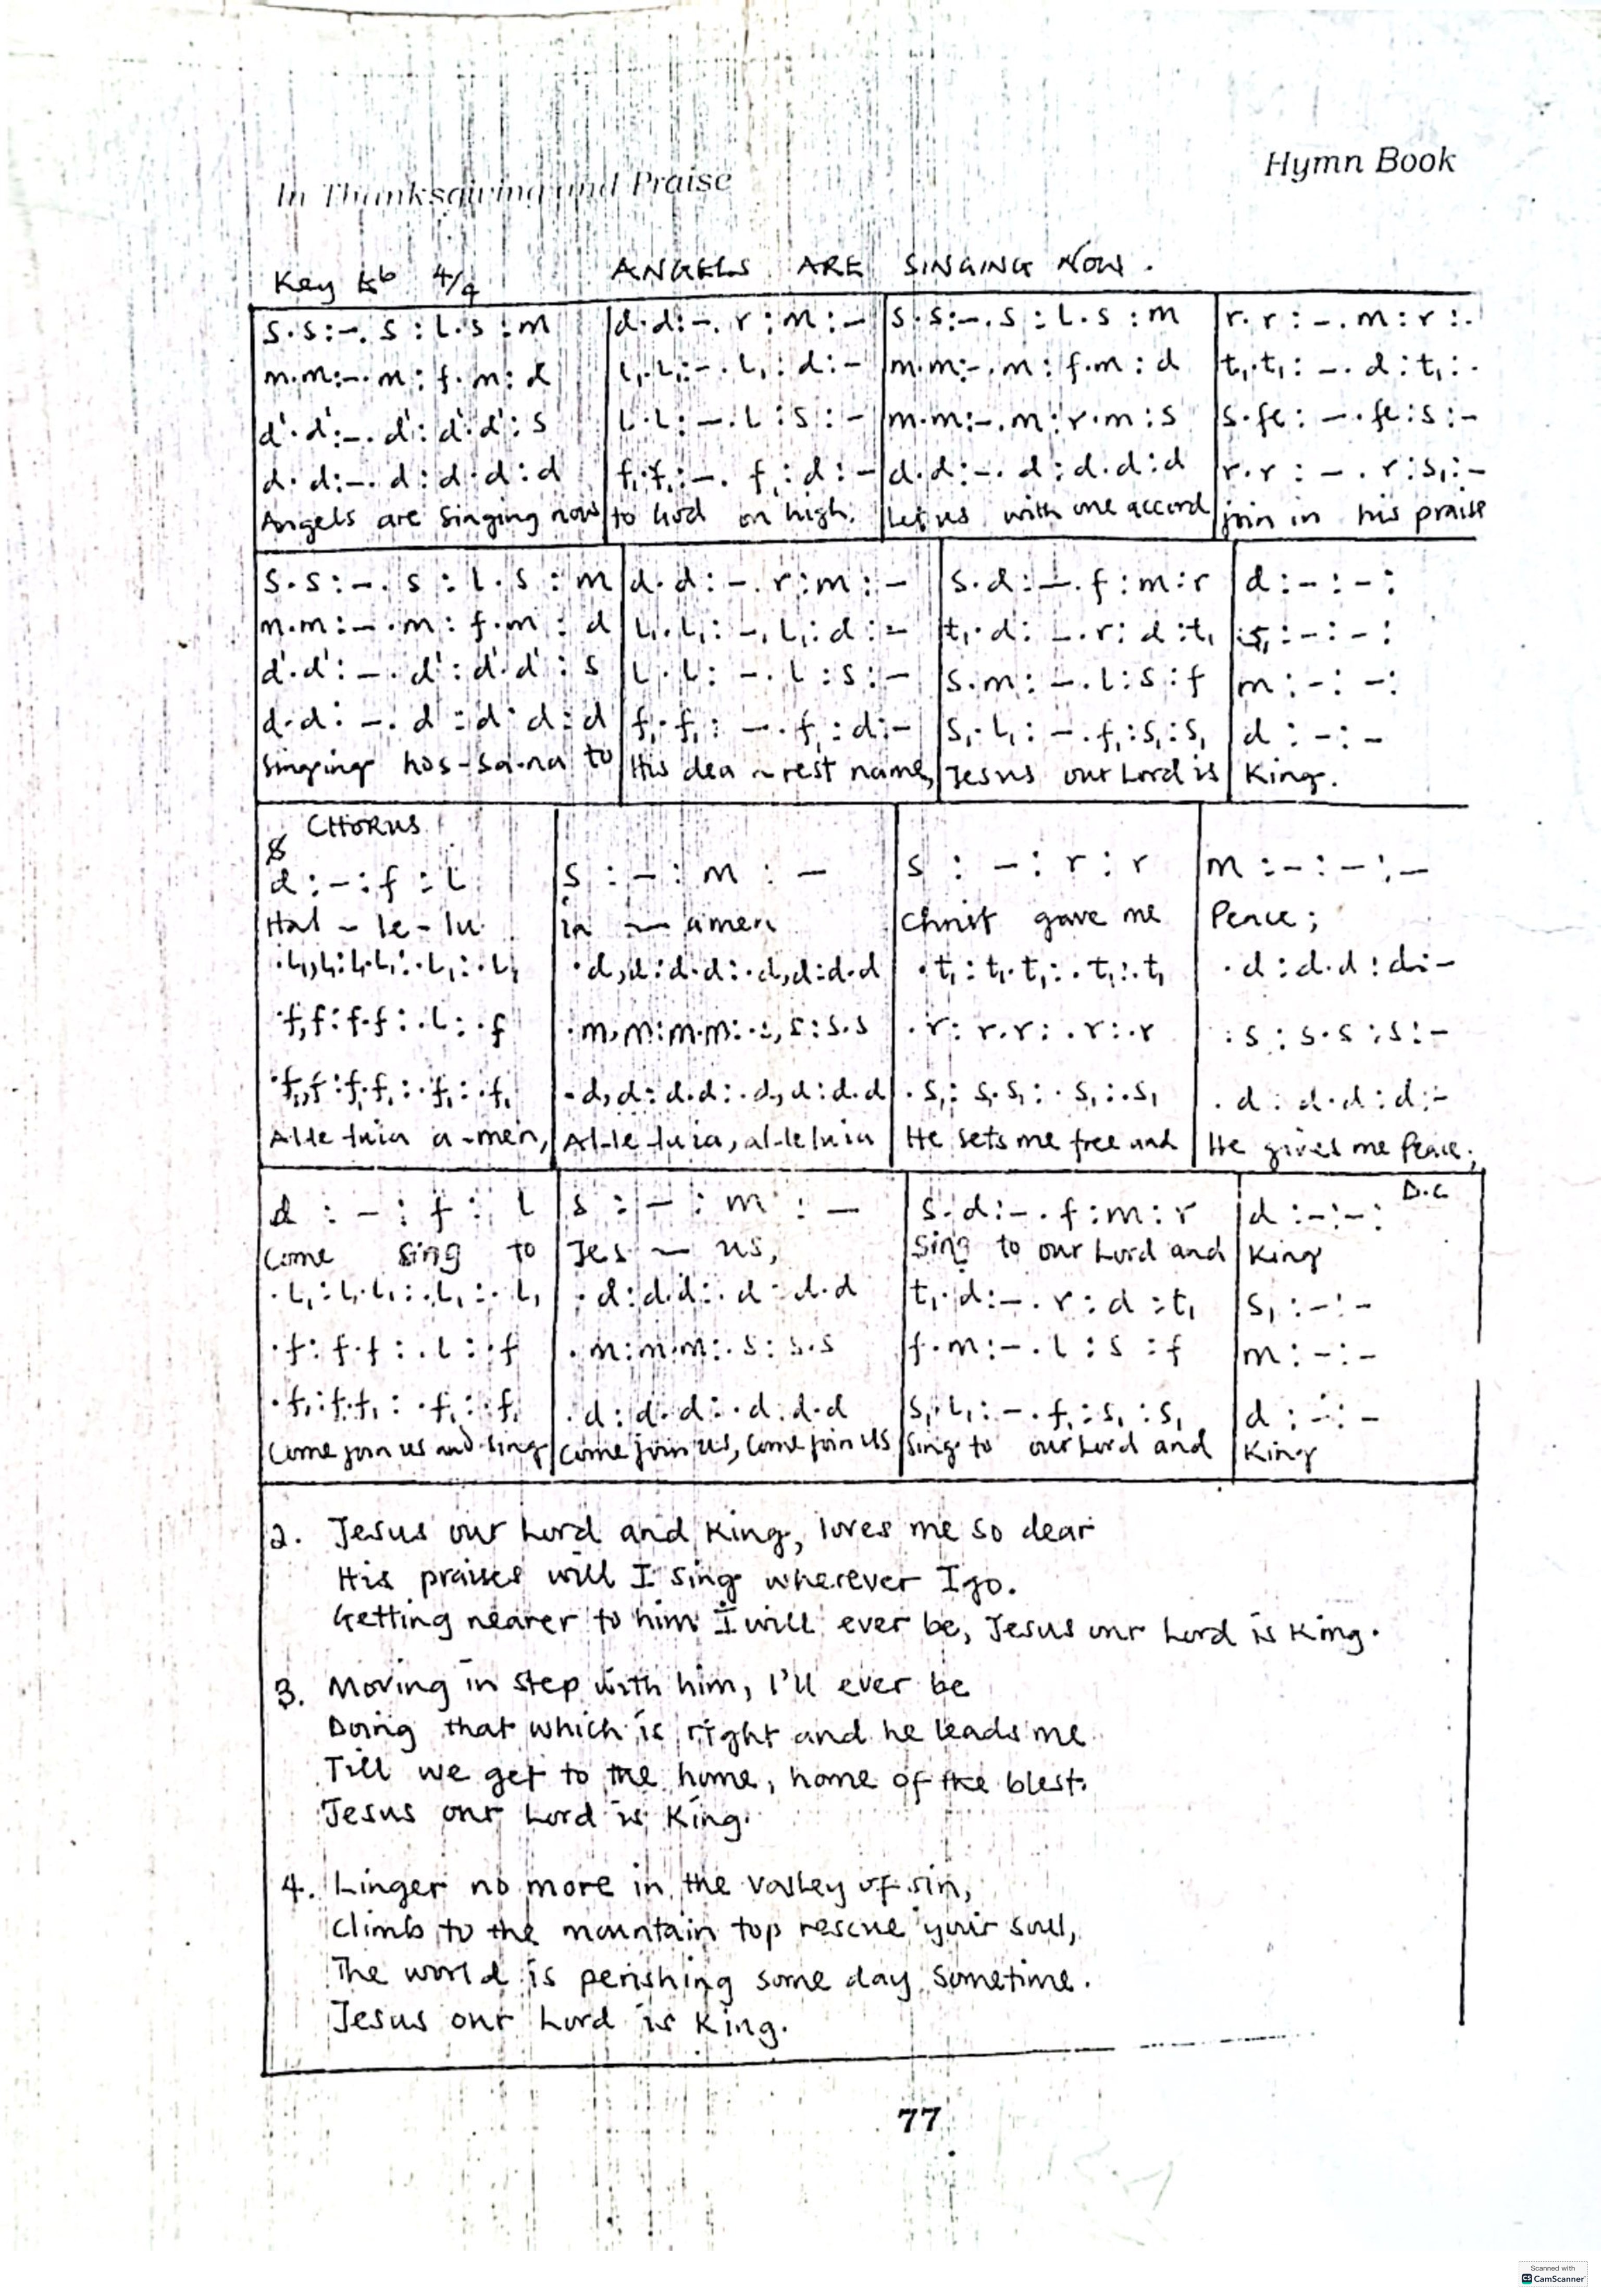 In Thanksgiving and Praise
Hymn Book
Key Eb 4/4 ANGELS ARE SINGING NOW.
s.s:-.s:l.s:m | d.d:-.r:m:- | s.s:-.s:l.s:m | r.r:-.m:r:.
m.m:-.m:f.m:d | l₁.l₁:-.l₁:d:- | m.m:-.m:f.m:d | t₁.t₁:-.d:t₁:.
d'.d':-.d':d'.d':s | l.l:-.l:s:- | m.m:-.m:r.m:s | s.fe:-.fe:s:-
d.d:-.d:d.d:d | f₁.f₁:-.f₁:d:- | d.d:-.d:d.d:d | r.r:-.r:s₁:-
Angels are Singing now | to God on high. | Let us with one accord | join in his praise
s.s:-.s:l.s:m | d.d:-.r:m:- | s.d:-.f:m:r | d:-:-:
m.m:-.m:f.m:d | l₁.l₁:-.l₁:d:- | t₁.d:-.r:d:t₁ | s₁:-:-:
d'.d':-.d':d'.d':s | l.l:-.l:s:- | s.m:-.l:s:f | m:-:-:
d.d:-.d:d.d:d | f₁.f₁:-.f₁:d:- | s₁.l₁:-.f₁:s₁:s₁ | d:-:-
Singing hos-sa-na to | His dea-rest name, | Jesus our Lord is | King.
CHORUS
d:-:f:l | s:-:m:- | s:-:r:r | m:-:-:-
Hal-le-lu | ia — amen | Christ gave me | Peace;
.l₁,l₁:l₁.l₁:.l₁:.l₁ | .d,d:d.d:.d,d:d.d | .t₁:t₁.t₁:.t₁:.t₁ | .d:d.d:d:-
.f,f:f.f:.l:.f | .m,m:m.m:.s,s:s.s | .r:r.r:.r:.r | :s:s.s:s:-
.f₁,f₁:f₁.f₁:.f₁:.f₁ | .d,d:d.d:.d,d:d.d | .s₁:s₁.s₁:.s₁:.s₁ | .d:d.d:d:-
Al-le luia a-men, | Al-le luia, al-leluia | He sets me free and | He gives me Peace;
d:-:f:l | s:-:m:- | s.d:-.f:m:r | d:-:-: D.C
Come sing to | Jes — us, | Sing to our Lord and | King
.l₁:l₁.l₁:.l₁:.l₁ | .d:d.d:.d:d.d | t₁.d:-.r:d:t₁ | s₁:-:-
.f:f.f:.l:.f | .m:m.m:.s:s.s | f.m:-.l:s:f | m:-:-
.f₁:f₁.f₁:.f₁:.f₁ | .d:d.d:.d.d.d | s₁.l₁:-.f₁:s₁:s₁ | d:-:-
Come join us and sing | Come join us, Come join us | Sing to our Lord and | King
2. Jesus our Lord and King, loves me so dear
His praises will I sing wherever I go.
Getting nearer to him I will ever be, Jesus our Lord is King.
3. Moving in step with him, I'll ever be
Doing that which is right and he leads me
Till we get to the home, home of the blest.
Jesus our Lord is King.
4. Linger no more in the valley of sin,
Climb to the mountain top rescue your soul,
The world is perishing some day sometime.
Jesus our Lord is King.
77
Scanned with
CS CamScanner